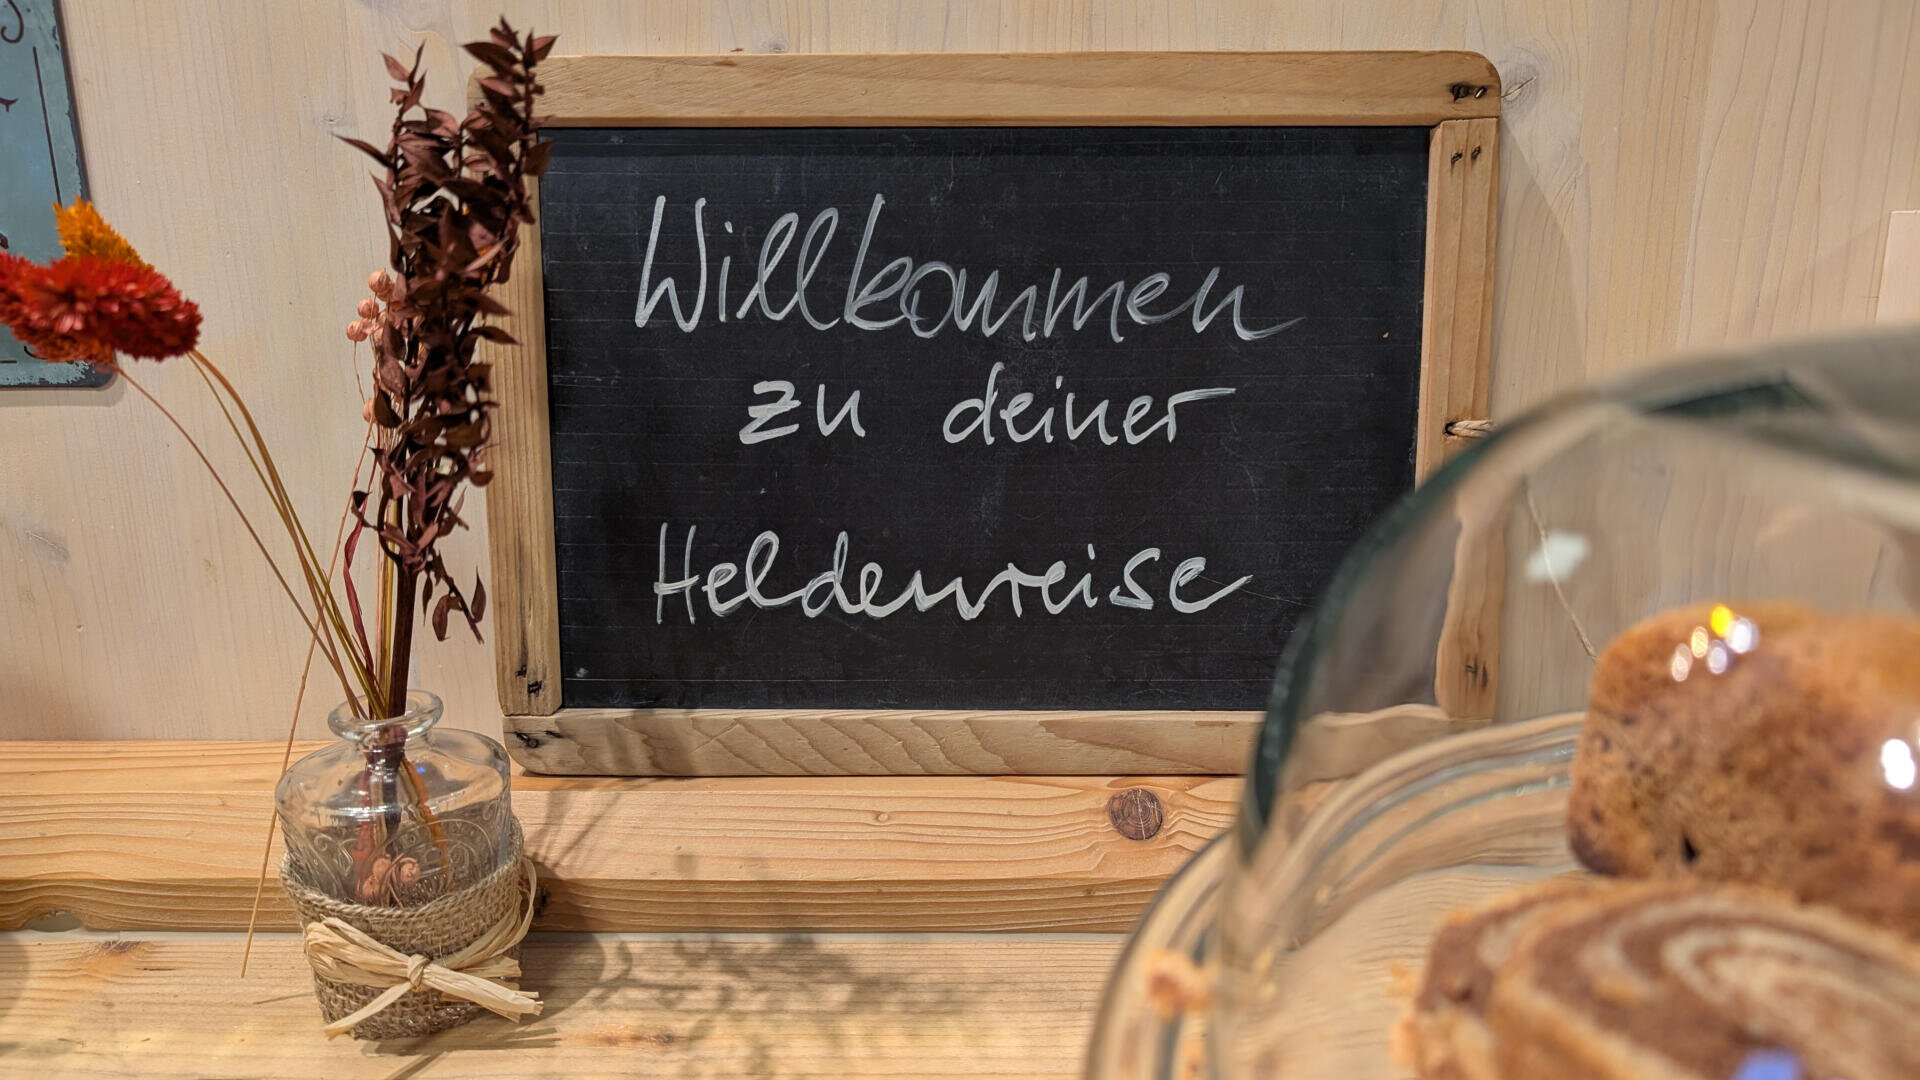 Willkommen
zu deiner
Heldenreise